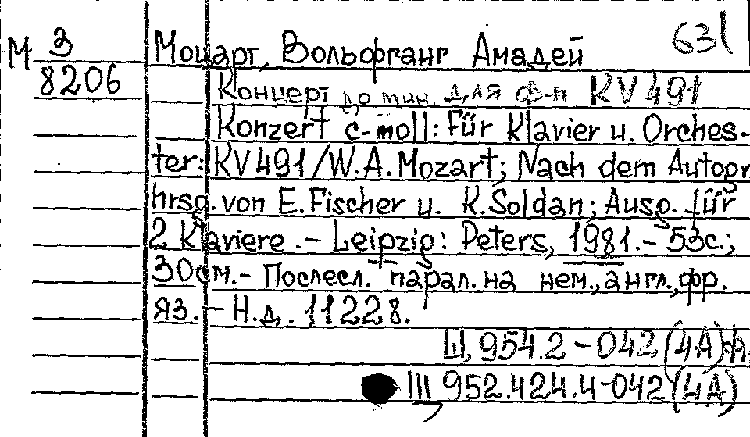 631
М 3 Моцарт, Вольфганг Амадей
8206 Концерт до мин. для ф-п KV 491
Konzert c-moll: Für Klavier u. Orches-
ter: KV 491/W.A. Mozart; Nach dem Autogr
hrsg. von E. Fischer u. K. Soldan; Ausg. für
2 Klaviere. - Leipzig: Peters, 1981. - 53с.;
30см. - Послесл. парал. на нем., англ., фр.
яз. - Н.д. 11228.
Ш, 954.2-042(4А)ф
Ш, 952.424.4-042(4А)